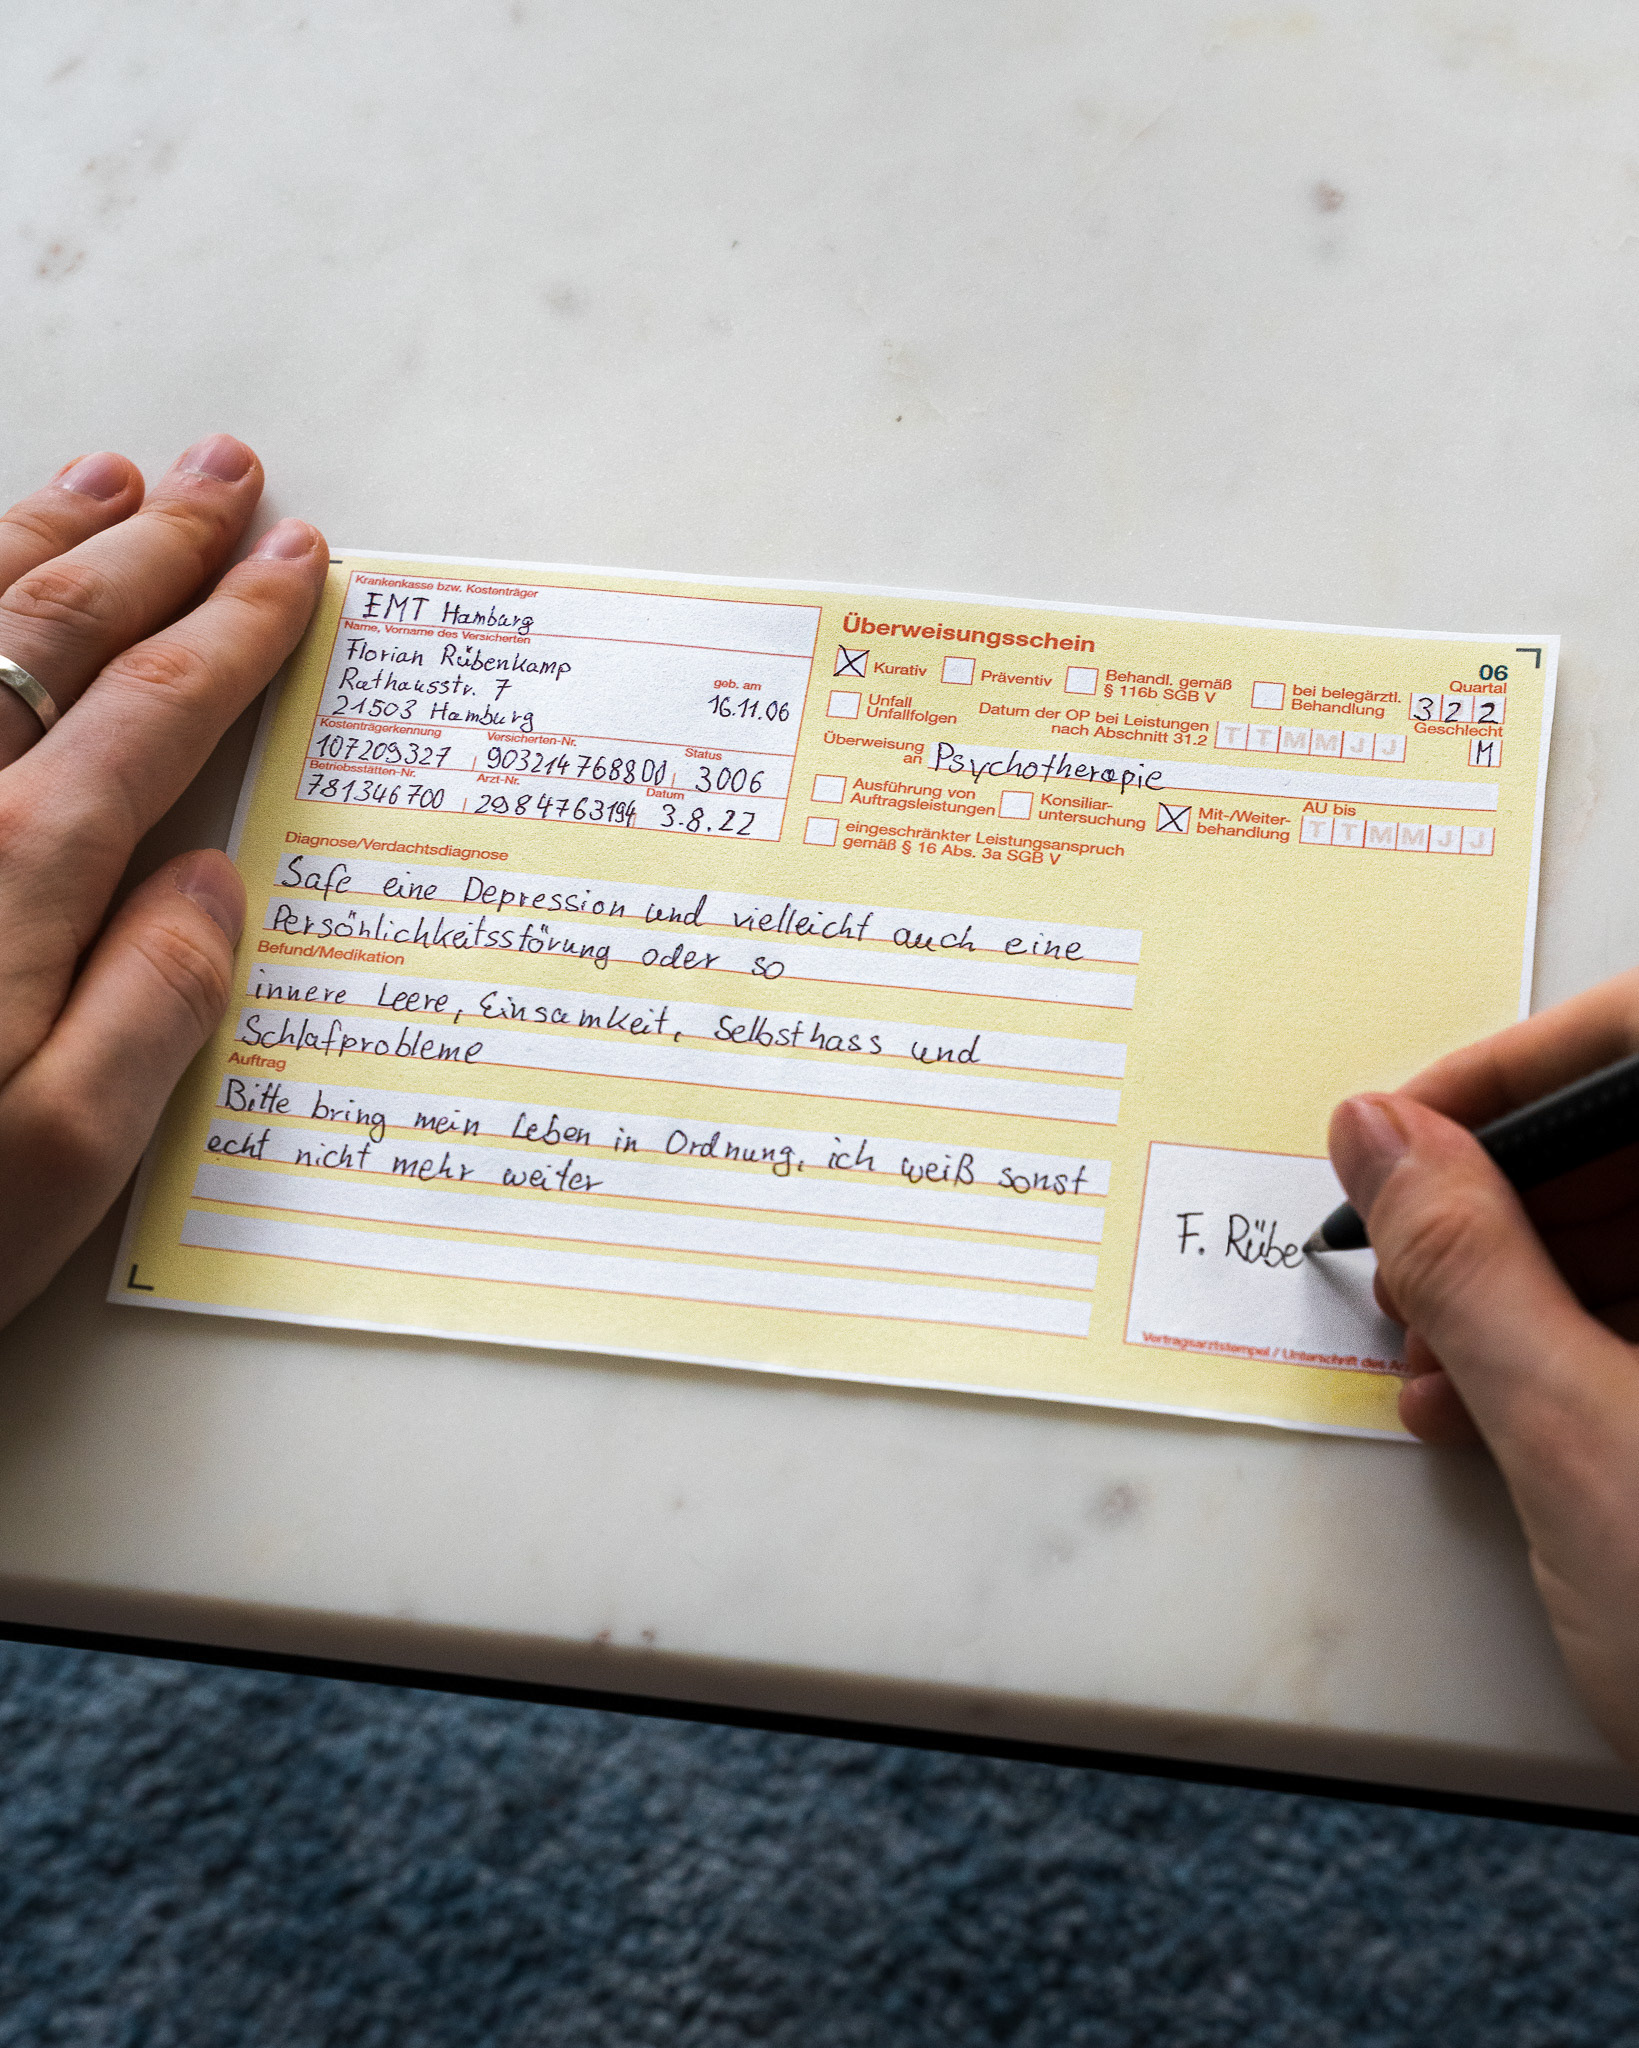 Krankenkasse bzw. Kostenträger
EMT Hamburg
Name, Vorname des Versicherten
Florian Rübenkamp
Rathausstr. 7
geb. am
21503 Hamburg
16.11.06
Kostenträgerkennung
Versicherten-Nr.
Status
107209327
903214768800
3006
Betriebsstätten-Nr.
Arzt-Nr.
Datum
781346700
2984763194
3.8.22
Überweisungsschein
06
X Kurativ
Präventiv
Behandl. gemäß
§ 116b SGB V
bei belegärztl.
Behandlung
Quartal
322
Unfall
Unfallfolgen
Datum der OP bei Leistungen
nach Abschnitt 31.2
TTMMJJ
Geschlecht
M
Überweisung
an
Psychotherapie
Ausführung von
Auftragsleistungen
Konsiliar-
untersuchung
X Mit-/Weiter-
behandlung
AU bis
TTMMJJ
eingeschränkter Leistungsanspruch
gemäß § 16 Abs. 3a SGB V
Diagnose/Verdachtsdiagnose
Safe eine Depression und vielleicht auch eine
Persönlichkeitsstörung oder so
Befund/Medikation
innere Leere, Einsamkeit, Selbsthass und
Schlafprobleme
Auftrag
Bitte bring mein Leben in Ordnung, ich weiß sonst
echt nicht mehr weiter
F. Rübe
Vertragsarztstempel / Unterschrift des